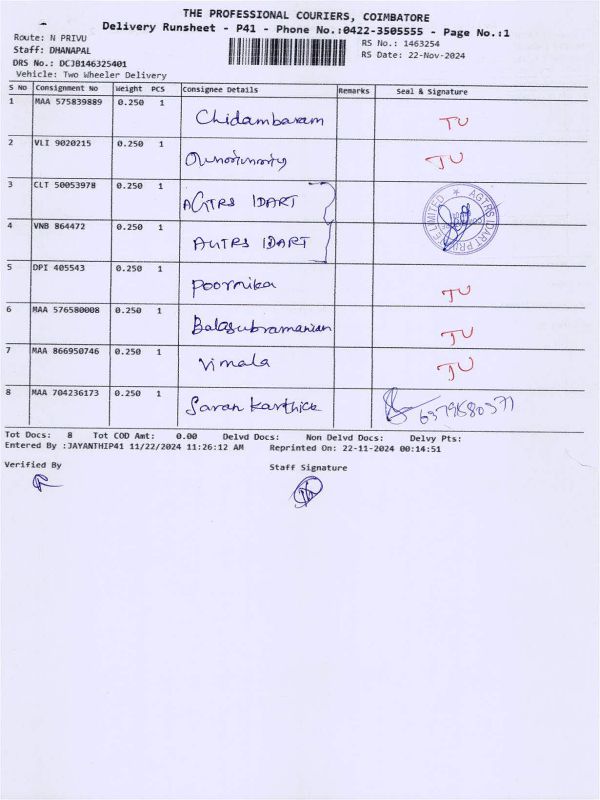 THE PROFESSIONAL COURIERS, COIMBATORE
Delivery Runsheet - P41 - Phone No.:0422-3505555 - Page No.:1
Route: N PRIVU
RS No.: 1463254
Staff: DHANAPAL
RS Date: 22-Nov-2024
DRS No.: DCJB146325401
Vehicle: Two Wheeler Delivery
S No Consignment No Weight PCS Consignee Details Remarks Seal & Signature
1 MAA 575839889 0.250 1 Chidambaram TU
2 VLI 9020215 0.250 1 TU
3 CLT 50053978 0.250 1 AGTRS IDART
4 VNB 864472 0.250 1 AGTRS IDART
5 DPI 405543 0.250 1 Poornika TU
6 MAA 576580008 0.250 1 Balasubramanian TU
7 MAA 866950746 0.250 1 Vimala TU
8 MAA 704236173 0.250 1 Saran Karthick
Tot Docs: 8 Tot COD Amt: 0.00 Delvd Docs: Non Delvd Docs: Delvy Pts:
Entered By :JAYANTHIP41 11/22/2024 11:26:12 AM Reprinted On: 22-11-2024 00:14:51
Verified By
Staff Signature